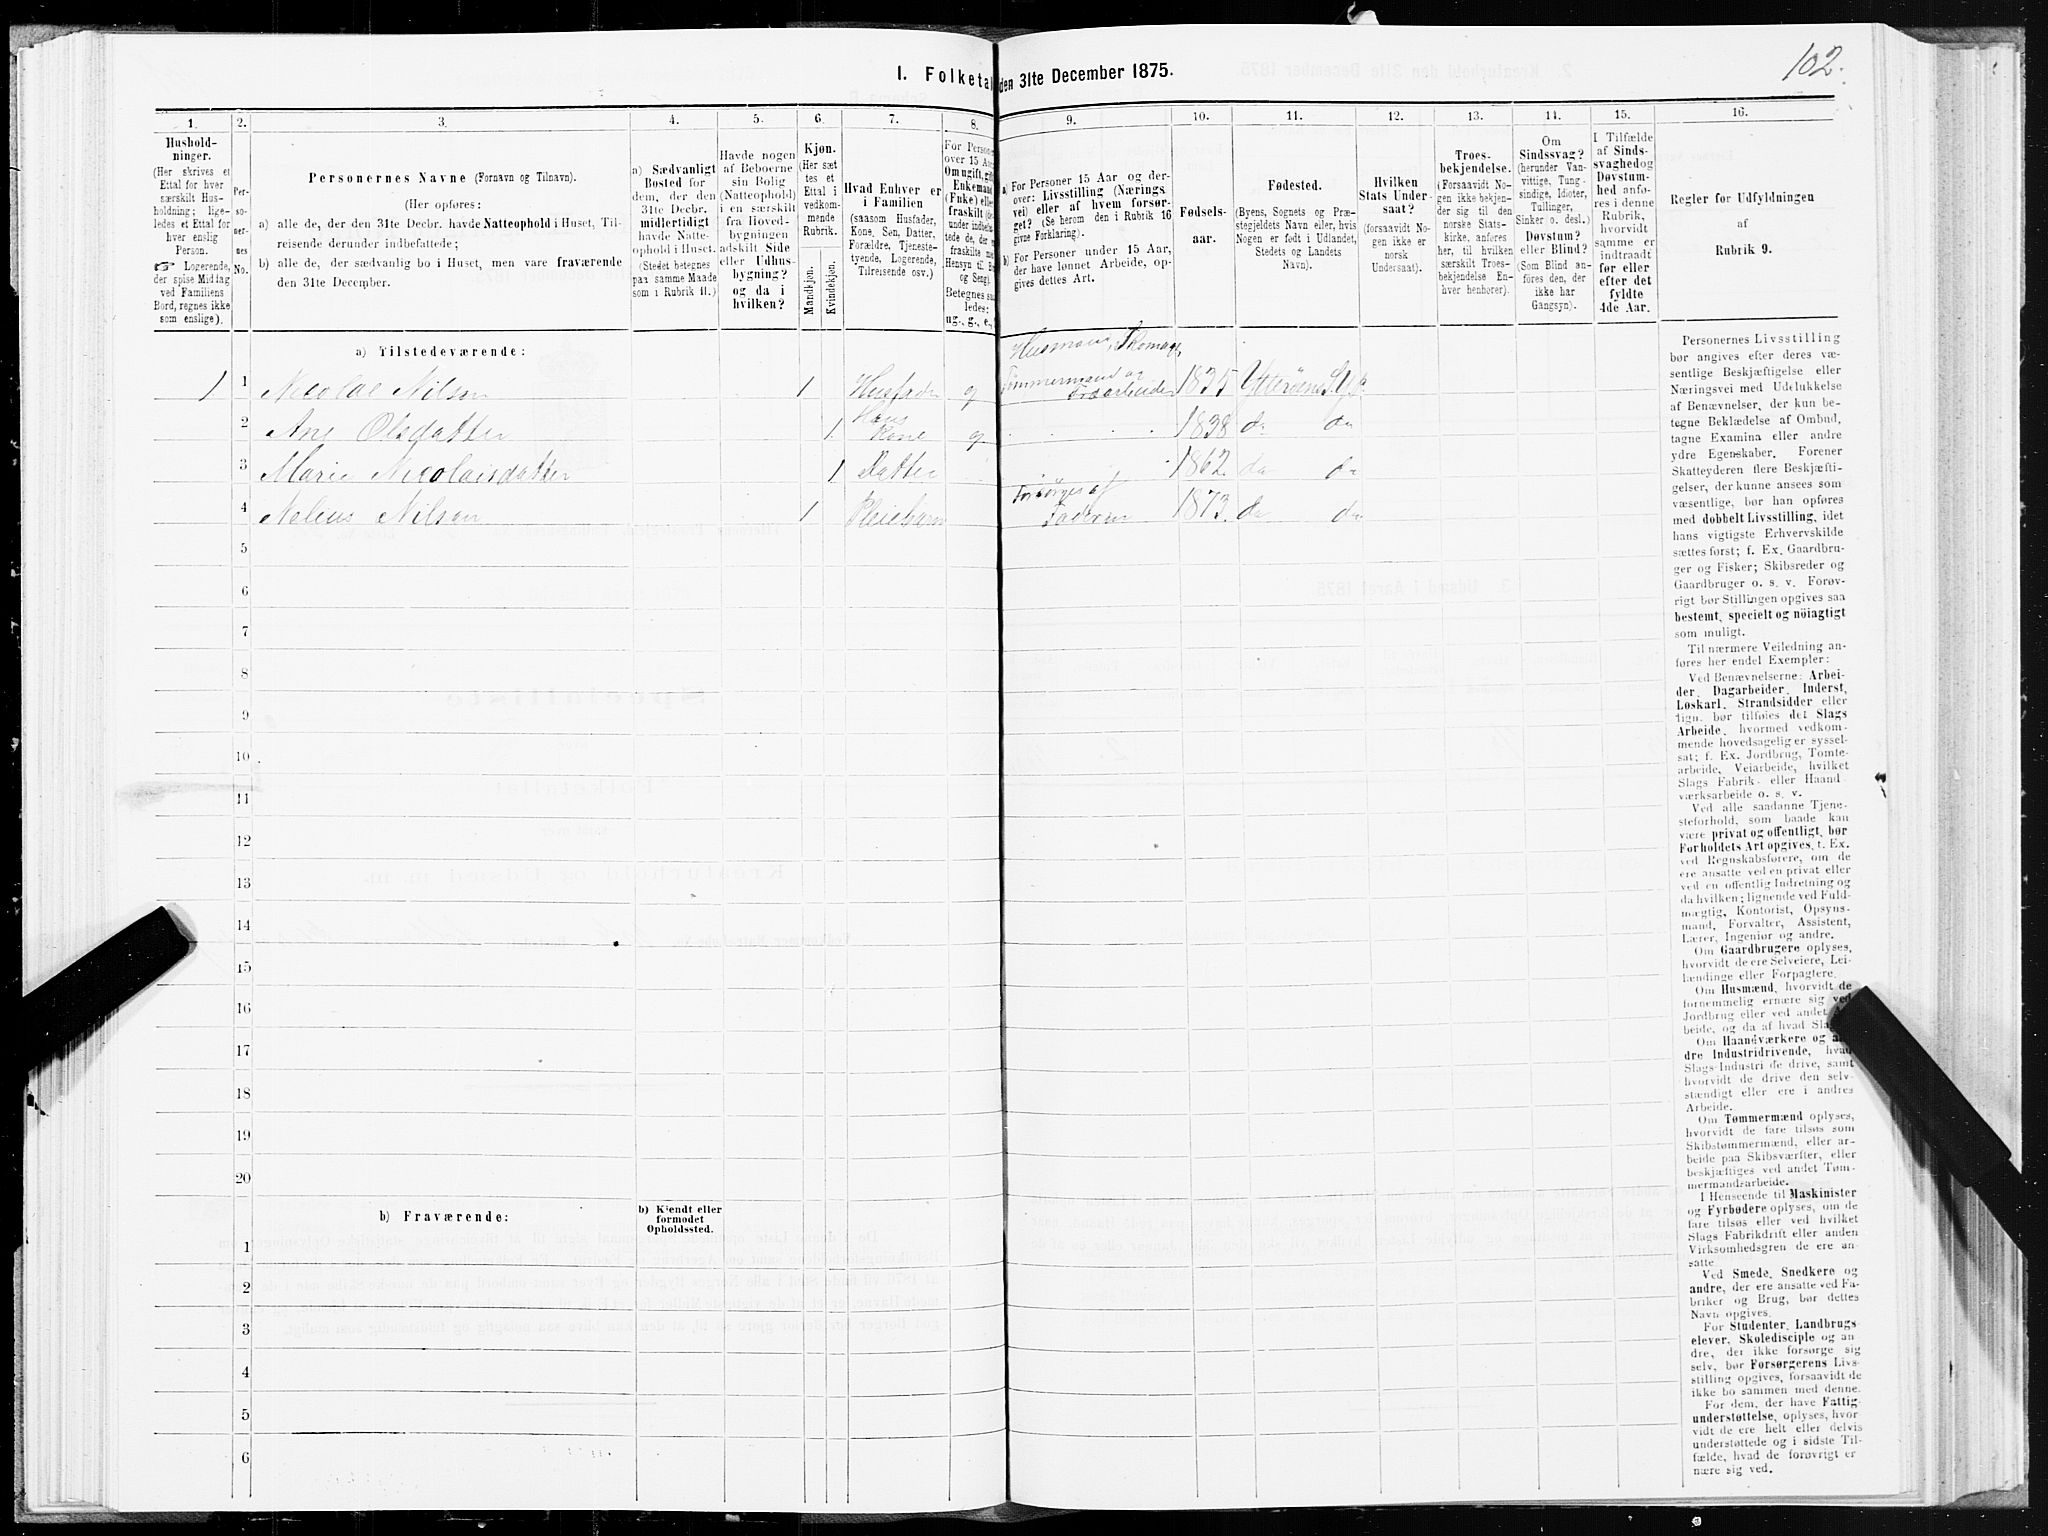 102.
I. Folketal den 31te December 1875.
1. 2. 3. 4. 5. 6. 7. 8. 9. 10. 11. 12. 13. 14. 15. 16.
Husholdninger.
(Her skrives et Ettal for hver særskilt Husholdning; ligeledes et Ettal for hver enslig Person.
☞ Logerende, der spise Middag ved Familiens Bord, regnes ikke som enslige).
Personernes No.
Personernes Navne (Fornavn og Tilnavn).
(Her opføres:
a) alle de, der den 31te Decbr. havde Natteophold i Huset, Tilreisende derunder indbefattede;
b) alle de, der sædvanlig bo i Huset, men vare fraværende den 31te December.
a) Sædvanligt Bosted for dem, der den 31te Decbr. midlertidigt havde Natteophold i Huset.
(Stedet betegnes paa samme Maade som i Rubrik 11.)
Havde nogen af Beboerne sin Bolig (Natteophold) i en særskilt fra Hovedbygningen adskilt Side eller Udhusbygning? og da i hvilken?
Kjøn.
(Her sættes et Ettal i vedkommende Rubrik.
Mandkjøn.
Kvindekjøn.
Hvad Enhver er i Familien
(saasom Husfader, Kone, Søn, Datter, Forældre, Tjenestetyende, Logerende, Tilreisende osv.)
a) For Personer 15 Aar og derover: Livsstilling (Næringsvei) eller af hvem forsørget? (Se herom den i Rubrik 16 givne Forklaring).
b) For Personer under 15 Aar, der have lønnet Arbeide, opgives dettes Art.
Fødselsaar.
Fødested.
(Byens, Sognets og Præstegjeldets Navn eller, hvis Nogen er født i Udlandet, Stedets og Landets Navn).
Hvilken Stats Undersaat?
(forsaavidt Nogen ikke er norsk Undersaat).
Troesbekjendelse.
(Forsaavidt Nogen ikke bekjender sig til den norske Statskirke, anføres her, til hvilken særskilt Troesbekjendelse Enhver henhører).
Om Sindssvag?
(herunder Vanvittige, Tungsindige, Idioter, Tullinger, Sinker o. desl.)
Døvstum? eller Blind?
(Som Blind anføres den, der ikke har Gangsyn).
I Tilfælde af Sindssvaghed og Døvstumhed anføres i denne Rubrik, hvorvidt samme er indtraadt før eller efter det fyldte 4de Aar.
Regler for Udfyldningen
af
Rubrik 9.
a) Tilstedeværende:
Husmand,
1 1 Nicolai Nilsen 1 Husfader g Tømmermand og Træarbeider 1835 Ytterøens
2 Ane Olsdatter 1 Hans Kone g 1838 do do
3 Marie Nicolaisdatter 1 Datter 1862. do do
4 Nelius Nilsen 1 Pleiebarn Forsørges af Faderen 1873. do do
5
6
7
8
9
10
11
12
13
14
15
16
17
18
19
20
b) Fraværende:
b) Kjendt eller formodet Opholdssted.
1
2
3
4
5
6
Personernes Livsstilling
bør angives efter deres væ-
sentlige Beskjæftigelse eller
Næringsvei med Udelukkelse
af Benævnelser, der kun be-
tegne Beklædelse af Ombud,
tagne Examina eller andre
ydre Egenskaber. Forener
Skatteyderen flere Beskjæfti-
gelser, der kunne ansees som
væsentlige, bør han opføres
med dobbelt Livsstilling, idet
hans vigtigste Erhvervskilde
sættes først; f. Ex. Gaardbru-
ger og Fisker; Skibsreder og
Gaardbruger o. s. v. Forøv-
rigt bør Stillingen opgives saa
bestemt, specielt og nöiagtigt
som muligt.
Til nærmere Veiledning an-
føres her endel Exempler:
Ved Benævnelserne: Arbei-
der, Dagarbeider, Inderst,
Løskarl, Strandsidder eller
lign. bør tilføies det Slags
Arbeide, hvormed vedkom-
mende hovedsagelig er syssel-
sat; f. Ex. Jordbrug, Tomte-
arbeide, Veiarbeide, hvilket
Slags Fabrik- eller Haand-
værksarbeide o. s. v.
Ved alle saadanne Tjene-
steforhold, som baade kan
være privat og offentligt, bør
Forholdets Art opgives, f. Ex.
ved Regnskabsførere, om de
ere ansatte ved en privat eller
ved en offentlig Indretning og
da hvilken; lignende ved Fuld-
mægtig, Kontorist, Opsyns-
mand, Forvalter, Assistent,
Lærer, Ingeniør og andre.
Om Gaardbrugere oplyses,
hvorvidt de ere Selveiere, Lei-
lændinge eller Forpagtere.
Om Husmænd, hvorvidt de
fornemmelig ernære sig ved
Jordbrug eller ved andet Ar-
beide, og da af hvad Slags.
Om Haandværkere og an-
dre Industridrivende, hvad
Slags Industri de drive, samt
hvorvidt de drive den selv-
stændigt eller ere i andres
Arbeide.
Om Tømmermænd oplyses,
hvorvidt de fare tilsøs som
Skibstømmermænd, eller ar-
beide paa Skibsværfter, eller
beskjæftiges ved andet Tøm-
mermandsarbeide.
I Henseende til Maskinister
og Fyrbødere oplyses, om de
fare tilsøs eller ved hvilket
Slags Fabrikdrift eller anden
Virksomhedsgren de ere an-
satte
Ved Smede, Snedkere og
andre, der ere ansatte ved Fa-
briker og Brug, bør dettes
Navn opgives.
For Studenter, Landbrugs-
elever, Skoledisciple og an-
dre, der ikke forsørge sig
selv, bør Forsørgerens Livs-
stilling opgives, forsaavidt de
ikke bo sammen med denne.
For dem, der have Fattig-
understøttelse, oplyses, hvor-
vidt de ere helt eller delvis
understøttede og i sidste Til-
fælde, hvad de forøvrigt er-
nære sig ved.